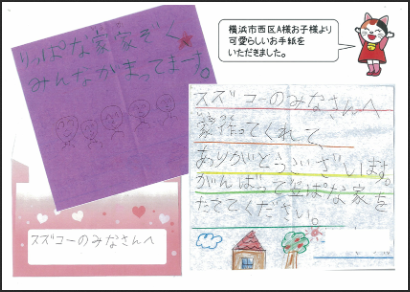 りっぱな家家ぞく★
みんながまってまーす。
横浜市西区A様お子様より
可愛らしいお手紙を
いただきました。
スズコーのみなさんへ
家作ってくれて、
ありがとうございます。
がんばって立ぱな家を
たててください。
スズコーのみなさんへ